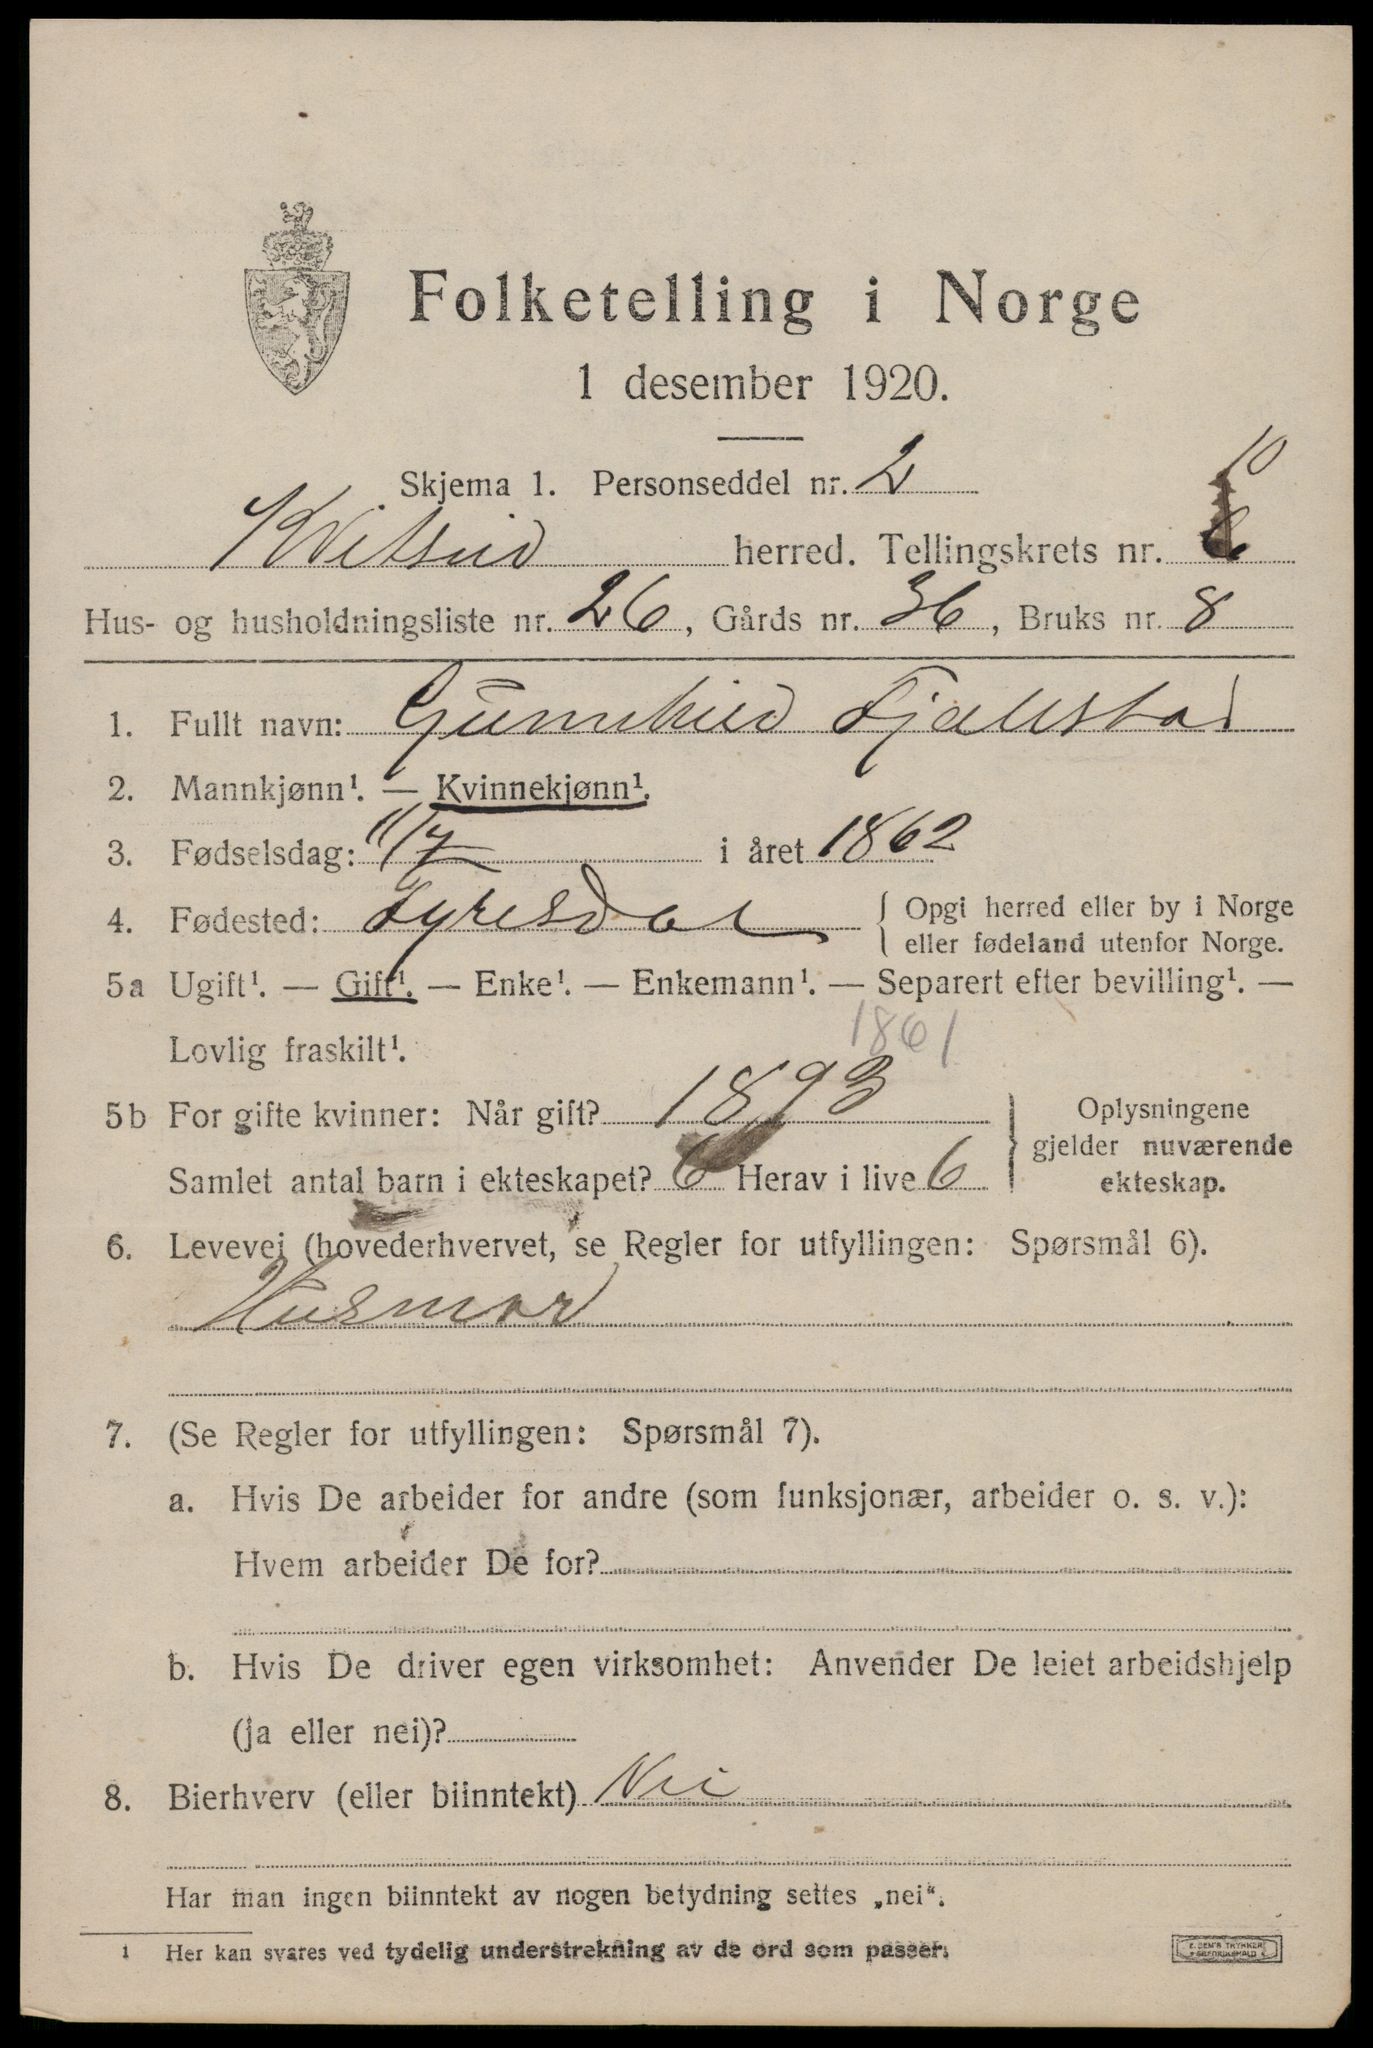 Folketelling i Norge
1 desember 1920.
Skjema 1. Personseddel nr. 2
10
Kvitseid herred. Tellingskrets nr. 6
Hus- og husholdningsliste nr. 26, Gårds nr. 36, Bruks nr. 8
1. Fullt navn: Gunnhild Fjallstad
2. Mannkjønn¹. — Kvinnekjønn¹.
3. Fødselsdag: 11/7 i året 1862
4. Fødested: Fyresdal { Opgi herred eller by i Norge
eller fødeland utenfor Norge.
5a Ugift¹. — Gift¹. — Enke¹. — Enkemann¹. — Separert efter bevilling¹. —
Lovlig fraskilt¹.
1861
5b For gifte kvinner: Når gift? 1893
Samlet antal barn i ekteskapet? 6 Herav i live 6
} Oplysningene
gjelder nuværende
ekteskap.
6. Levevei (hovederhvervet, se Regler for utfyllingen: Spørsmål 6).
Husmor
7. (Se Regler for utfyllingen: Spørsmål 7).
a. Hvis De arbeider for andre (som funksjonær, arbeider o. s. v.):
Hvem arbeider De for?
b. Hvis De driver egen virksomhet: Anvender De leiet arbeidshjelp
(ja eller nei)?
8. Bierhverv (eller biinntekt) Nei
Har man ingen biinntekt av nogen betydning settes „nei“.
1 Her kan svares ved tydelig understrekning av de ord som passer.